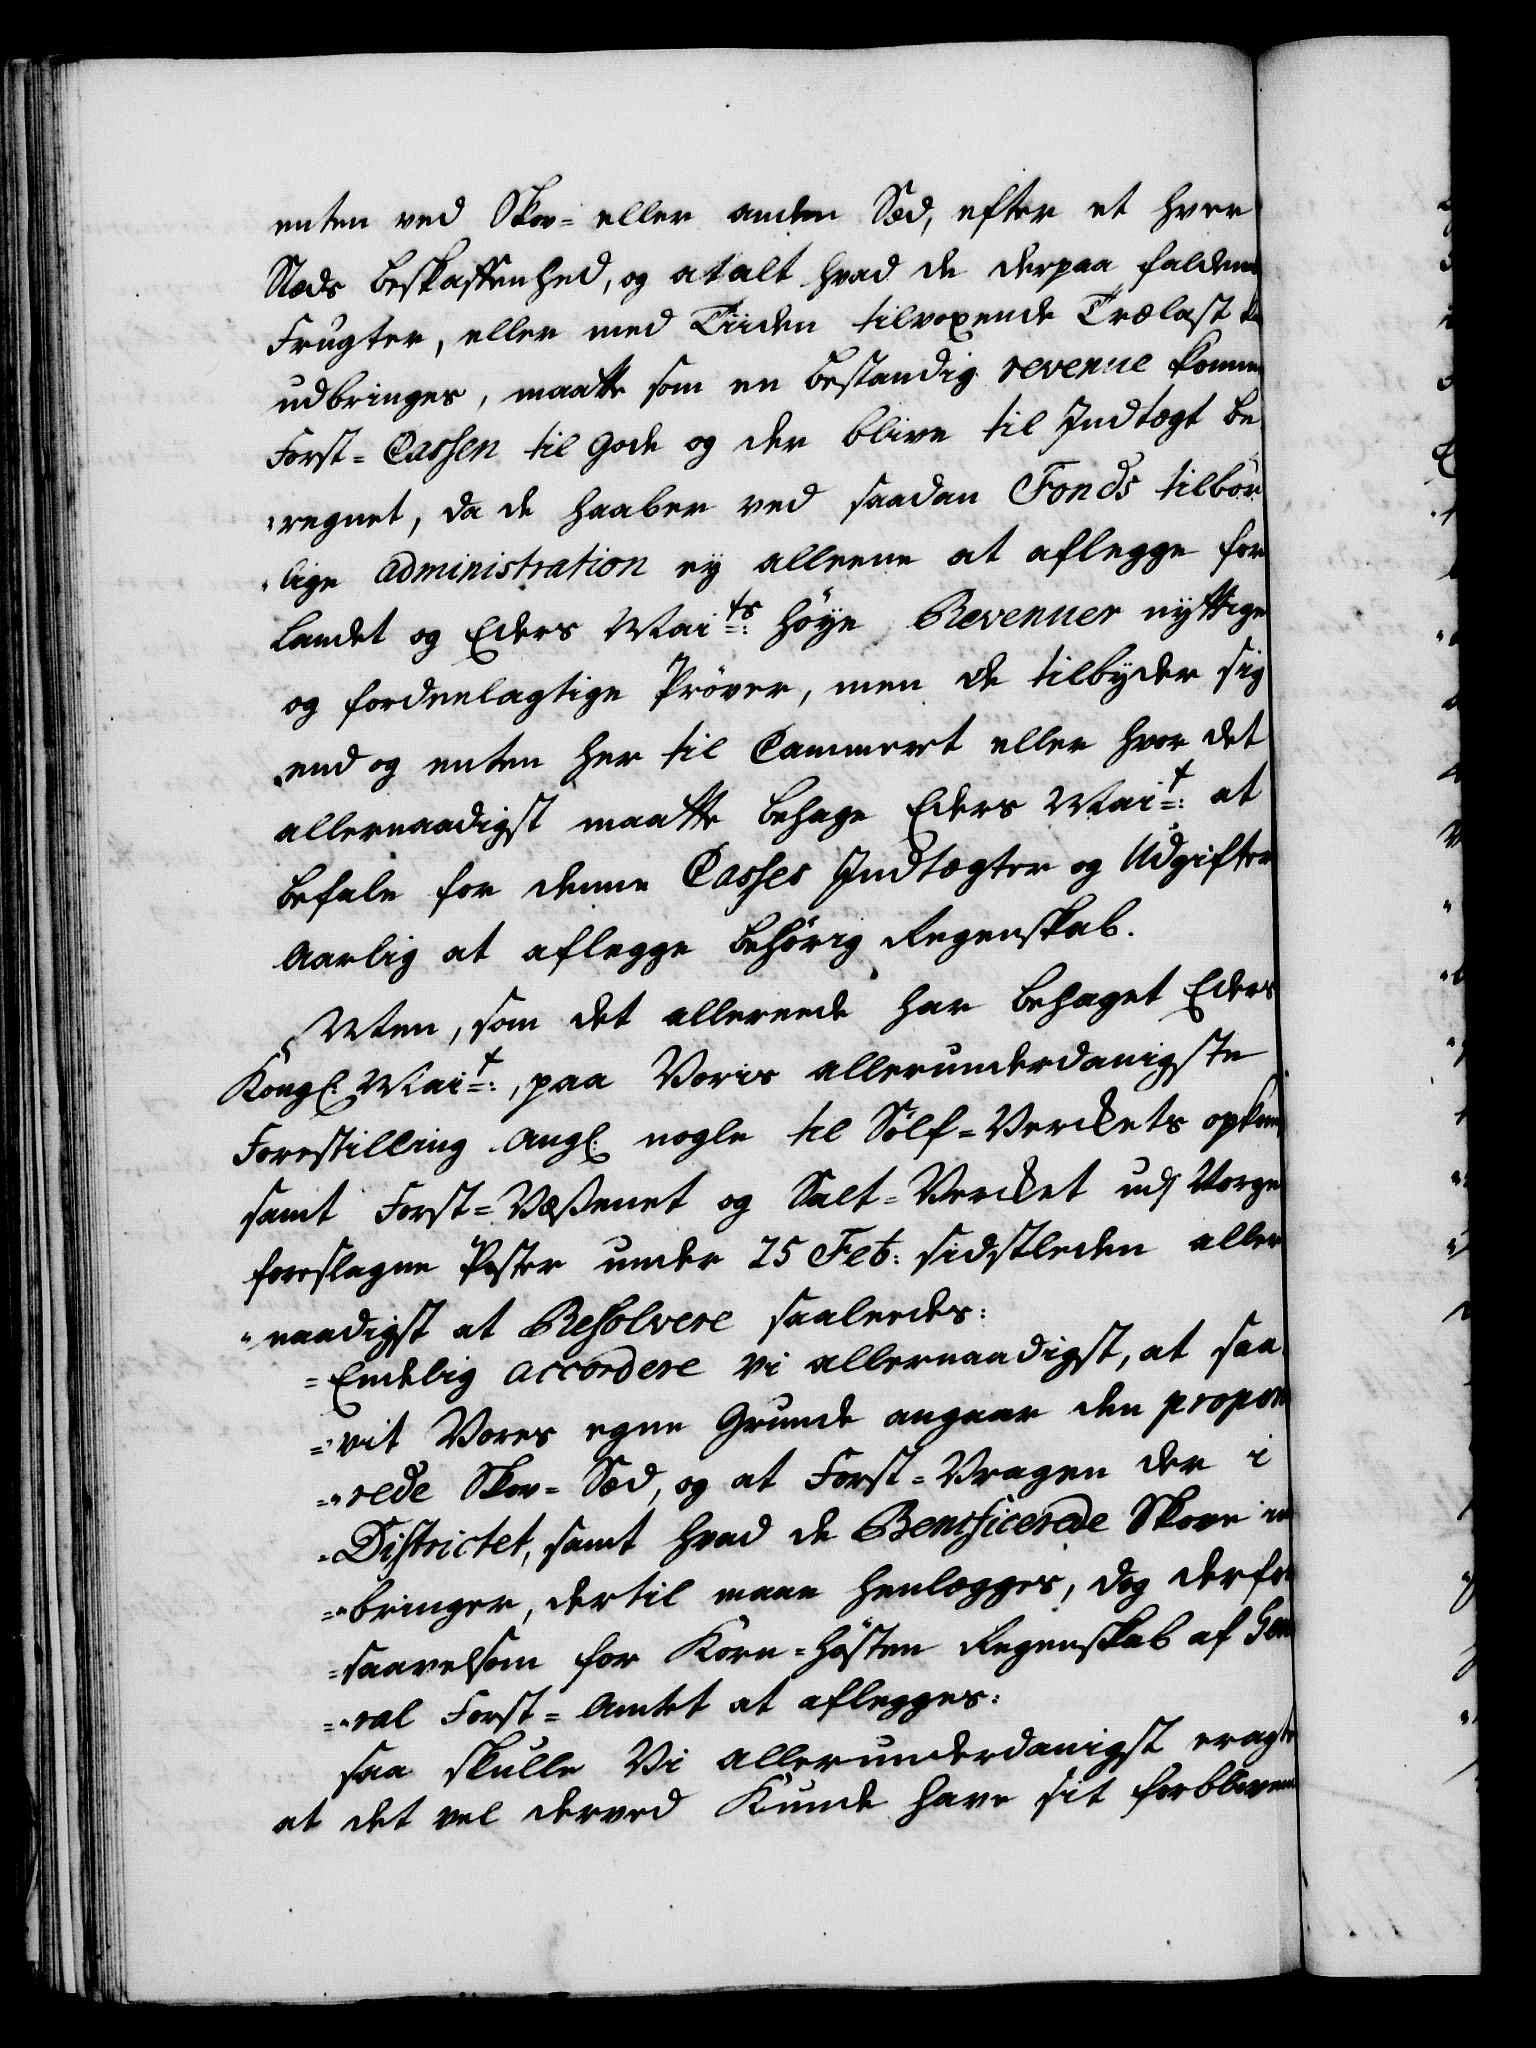 enten ved Skov= eller anden Sæd, efter et hver
Stæds beskaffenhed, og at alt hvad de derpaa faldende
Frugter, eller med Tiiden tilvoxende Trælast
udbringes, maatte som en bestandig revenue komme
Forst=Cassen til gode og der blive til Indtægt be
„regnet, da de haaber ved saadan Fonds tilbør
„lige administration ey alleene at aflegge for
Landet og Eders Maits: høye Revenuer nyttige
og fordeelagtige Prøver, men de tilbyder sig
end og enten her til Cammeret eller hvor det
allernaadigst maatte behage Eders Mait: at
befale for denne Casses Indtægter og Udgifter
Aarlig at aflegge behørig Regenskab.
Men, som det allereede har behaget Eders
Kongl: Mait:, paa Voris allerunderdanigste
Forestilling angl: nogle til Sølf=Verckets opkom
samt Forst=Væssenet og Salt=Vercket udj Norge
foreslagne Poster under 25 Feb: sidstleden aller
„naadigst at Resolvere saaleedes:
=Endelig accordere Vi allernaadigst, at saa
=„vit Vores egne Grunde angaar den propone
=„rede Skov=Sæd, og at Forst=Vragen der i
=Districtet, samt hvad de Beneficerede Skove in
=„bringer, dertil maae henlægges, dog derfor
=saavelsom for Korn=Høsten Regenskab af Gene
=„ral Forst=Amtet at aflegges:
saa skulle Vi allerunderdanigst eragte
at det vel derved Kunde have sit forblivende